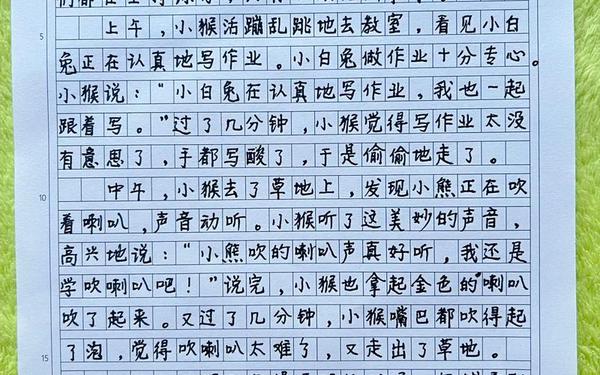 5
上午，小猴活蹦乱跳地去教室，看见小白
兔正在认真地写作业。小白兔做作业十分专心。
小猴说：“小白兔在认真地写作业，我也一起
跟着写。”过了几分钟，小猴觉得写作业太没
有意思了，手都写酸了，于是偷偷地走了。
10
中午，小猴去了草地上，发现小熊正在吹
着喇叭，声音动听。小猴听了这美妙的声音，
高兴地说：“小熊吹的喇叭声真好听，我还是
学吹喇叭吧！”说完，小猴也拿起金色的喇叭
吹了起来。又过了几分钟，小猴嘴巴都吹得起
15
了泡，觉得吹喇叭太难了，又走出了草地。